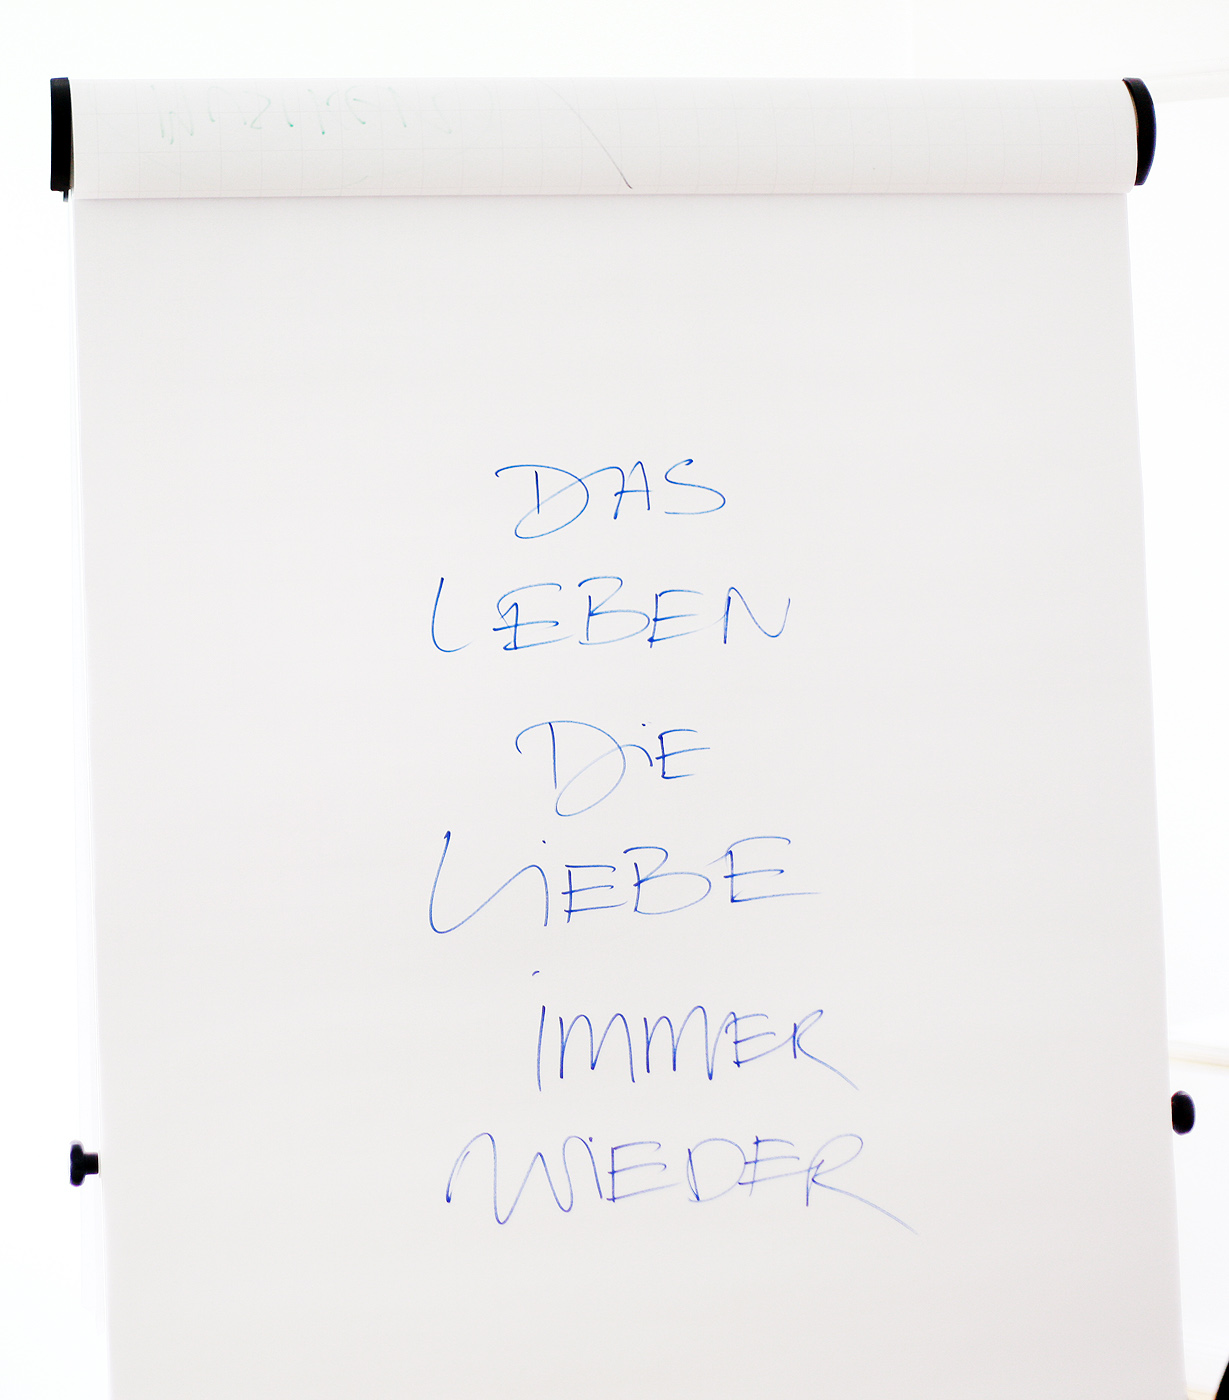 DAS
LEBEN
DiE
LiEBE
iMMER
WiEDER